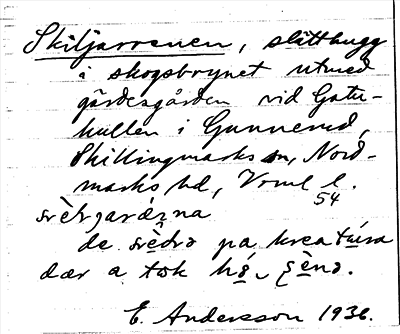 Skiljarrenen, slåtthugg
i skogsbrynet utmed
gärdesgården vid Gatu-
kullen i Gunnerud,
Skillingmarks sn, Nord-
marks hd, Vrml l.
54
de pa kreatúra
dær a tok hǿ, sèno.
E. Andersson 1936.